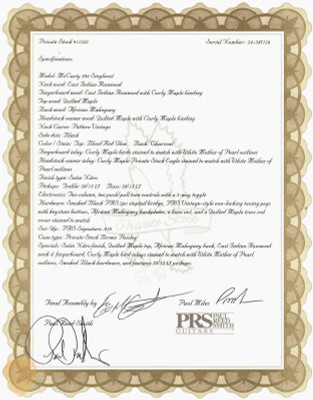 Private Stock #11242
Serial Number: 24-387124
Specifications:
Model: McCarty 594 Singlecut
Neck wood: East Indian Rosewood
Fingerboard wood: East Indian Rosewood with Curly Maple binding
Top wood: Quilted Maple
Back wood: African Mahogany
Headstock veneer wood: Quilted Maple with Curly Maple binding
Neck Carve: Pattern Vintage
Side dots: Black
Color / Stain: Top: Blood Red Glow Back: Charcoal
Fingerboard inlay: Curly Maple birds stained to match with White Mother of Pearl outlines
Headstock veneer inlay: Curly Maple Private Stock Eagle stained to match with White Mother of
Pearl outlines
Finish type: Satin Nitro
Pickups: Treble: 58/15 LT Bass: 58/15 LT
Electronics: Two volume, two push/pull tone controls with a 3-way toggle
Hardware: Smoked Black PRS two stoptail bridge, PRS Vintage-style non-locking tuning pegs
with keystone buttons, African Mahogany backplates, a bone nut, and a Quilted Maple truss rod
cover stained to match
Set-Up: PRS Signature
Case type: Private Stock Brown Paisley
Specials: Satin Nitro finish, Quilted Maple top, African Mahogany back, East Indian Rosewood
neck & fingerboard, Curly Maple bird inlays stained to match with White Mother of Pearl
outlines, Smoked Black hardware, and features 58/15 LT pickups.
Final Assembly by
Paul Miles
Paul Reed Smith
PRS PAUL
REED
SMITH
GUITARS